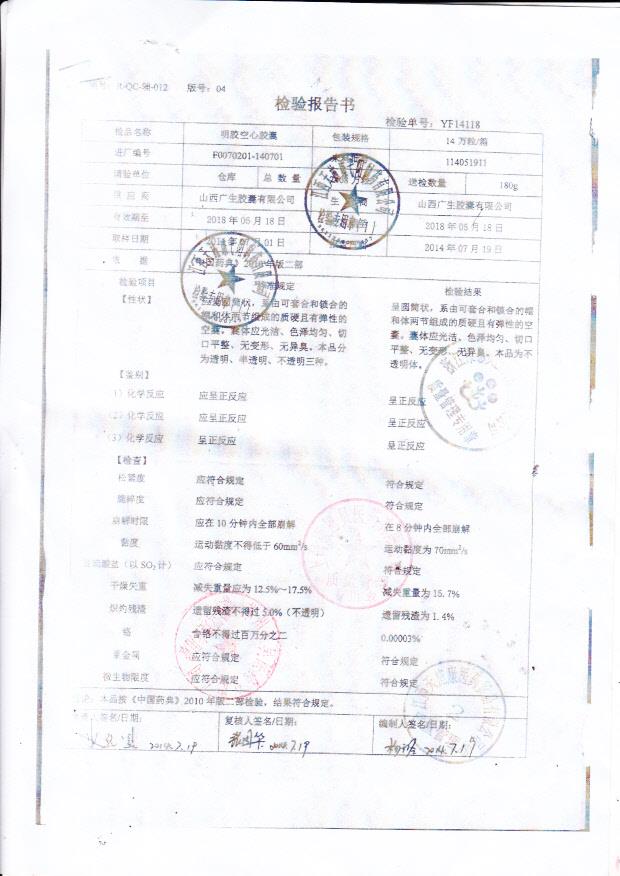 R-QC-98-012 版号：04
检验报告书
检验单号：YF14118
检品名称 明胶空心胶囊 包装规格 14万粒/箱
进厂编号 F0070201-140701 114051911
请验单位 仓库 总数量 送检数量 180g
供应商 山西广生胶囊有限公司 生 商 山西广生胶囊有限公司
有效期至 2018年05月18日 2018年05月18日
取样日期 月01日 2014年07月19日
依 据 中国药典》2010年版二部
检验项目 标准规定 检验结果
【性状】 呈圆筒状，系由可套合和锁合的 呈圆筒状，系由可套合和锁合的
帽和体两节组成的质硬且有弹性的 帽和体两节组成的质硬且有弹性的
空囊。囊体应光洁、色泽均匀、切口 空囊。囊体应光洁、色泽均匀、切口
平整、无变形、无异臭。本品分 平整、无变形、无异臭。本品为不
为透明、半透明、不透明三种。 透明体。
【鉴别】
（1）化学反应 应呈正反应 呈正反应
（2）化学反应 应呈正反应 呈正反应
（3）化学反应 呈正反应 呈正反应
【检查】
松紧度 应符合规定 符合规定
脆碎度 应符合规定 符合规定
崩解时限 应在10分钟内全部崩解 在8分钟内全部崩解
黏度 运动黏度不得低于60mm²/s 运动黏度为70mm²/s
硫酸盐（以SO₂计） 应符合规定 符合规定
干燥失重 减失重量应为12.5%~17.5% 减失重量为15.7%
炽灼残渣 遗留残渣不得过5.0%（不透明） 遗留残渣为1.4%
铬 含铬不得过百万分之二 0.00003%
重金属 应符合规定 符合规定
微生物限度 应符合规定 符合规定
论：本品按《中国药典》2010年版二部检验，结果符合规定。
人签名/日期： 复核人签名/日期： 编制人签名/日期：
2014.7.19 2014.7.19 2014.7.19